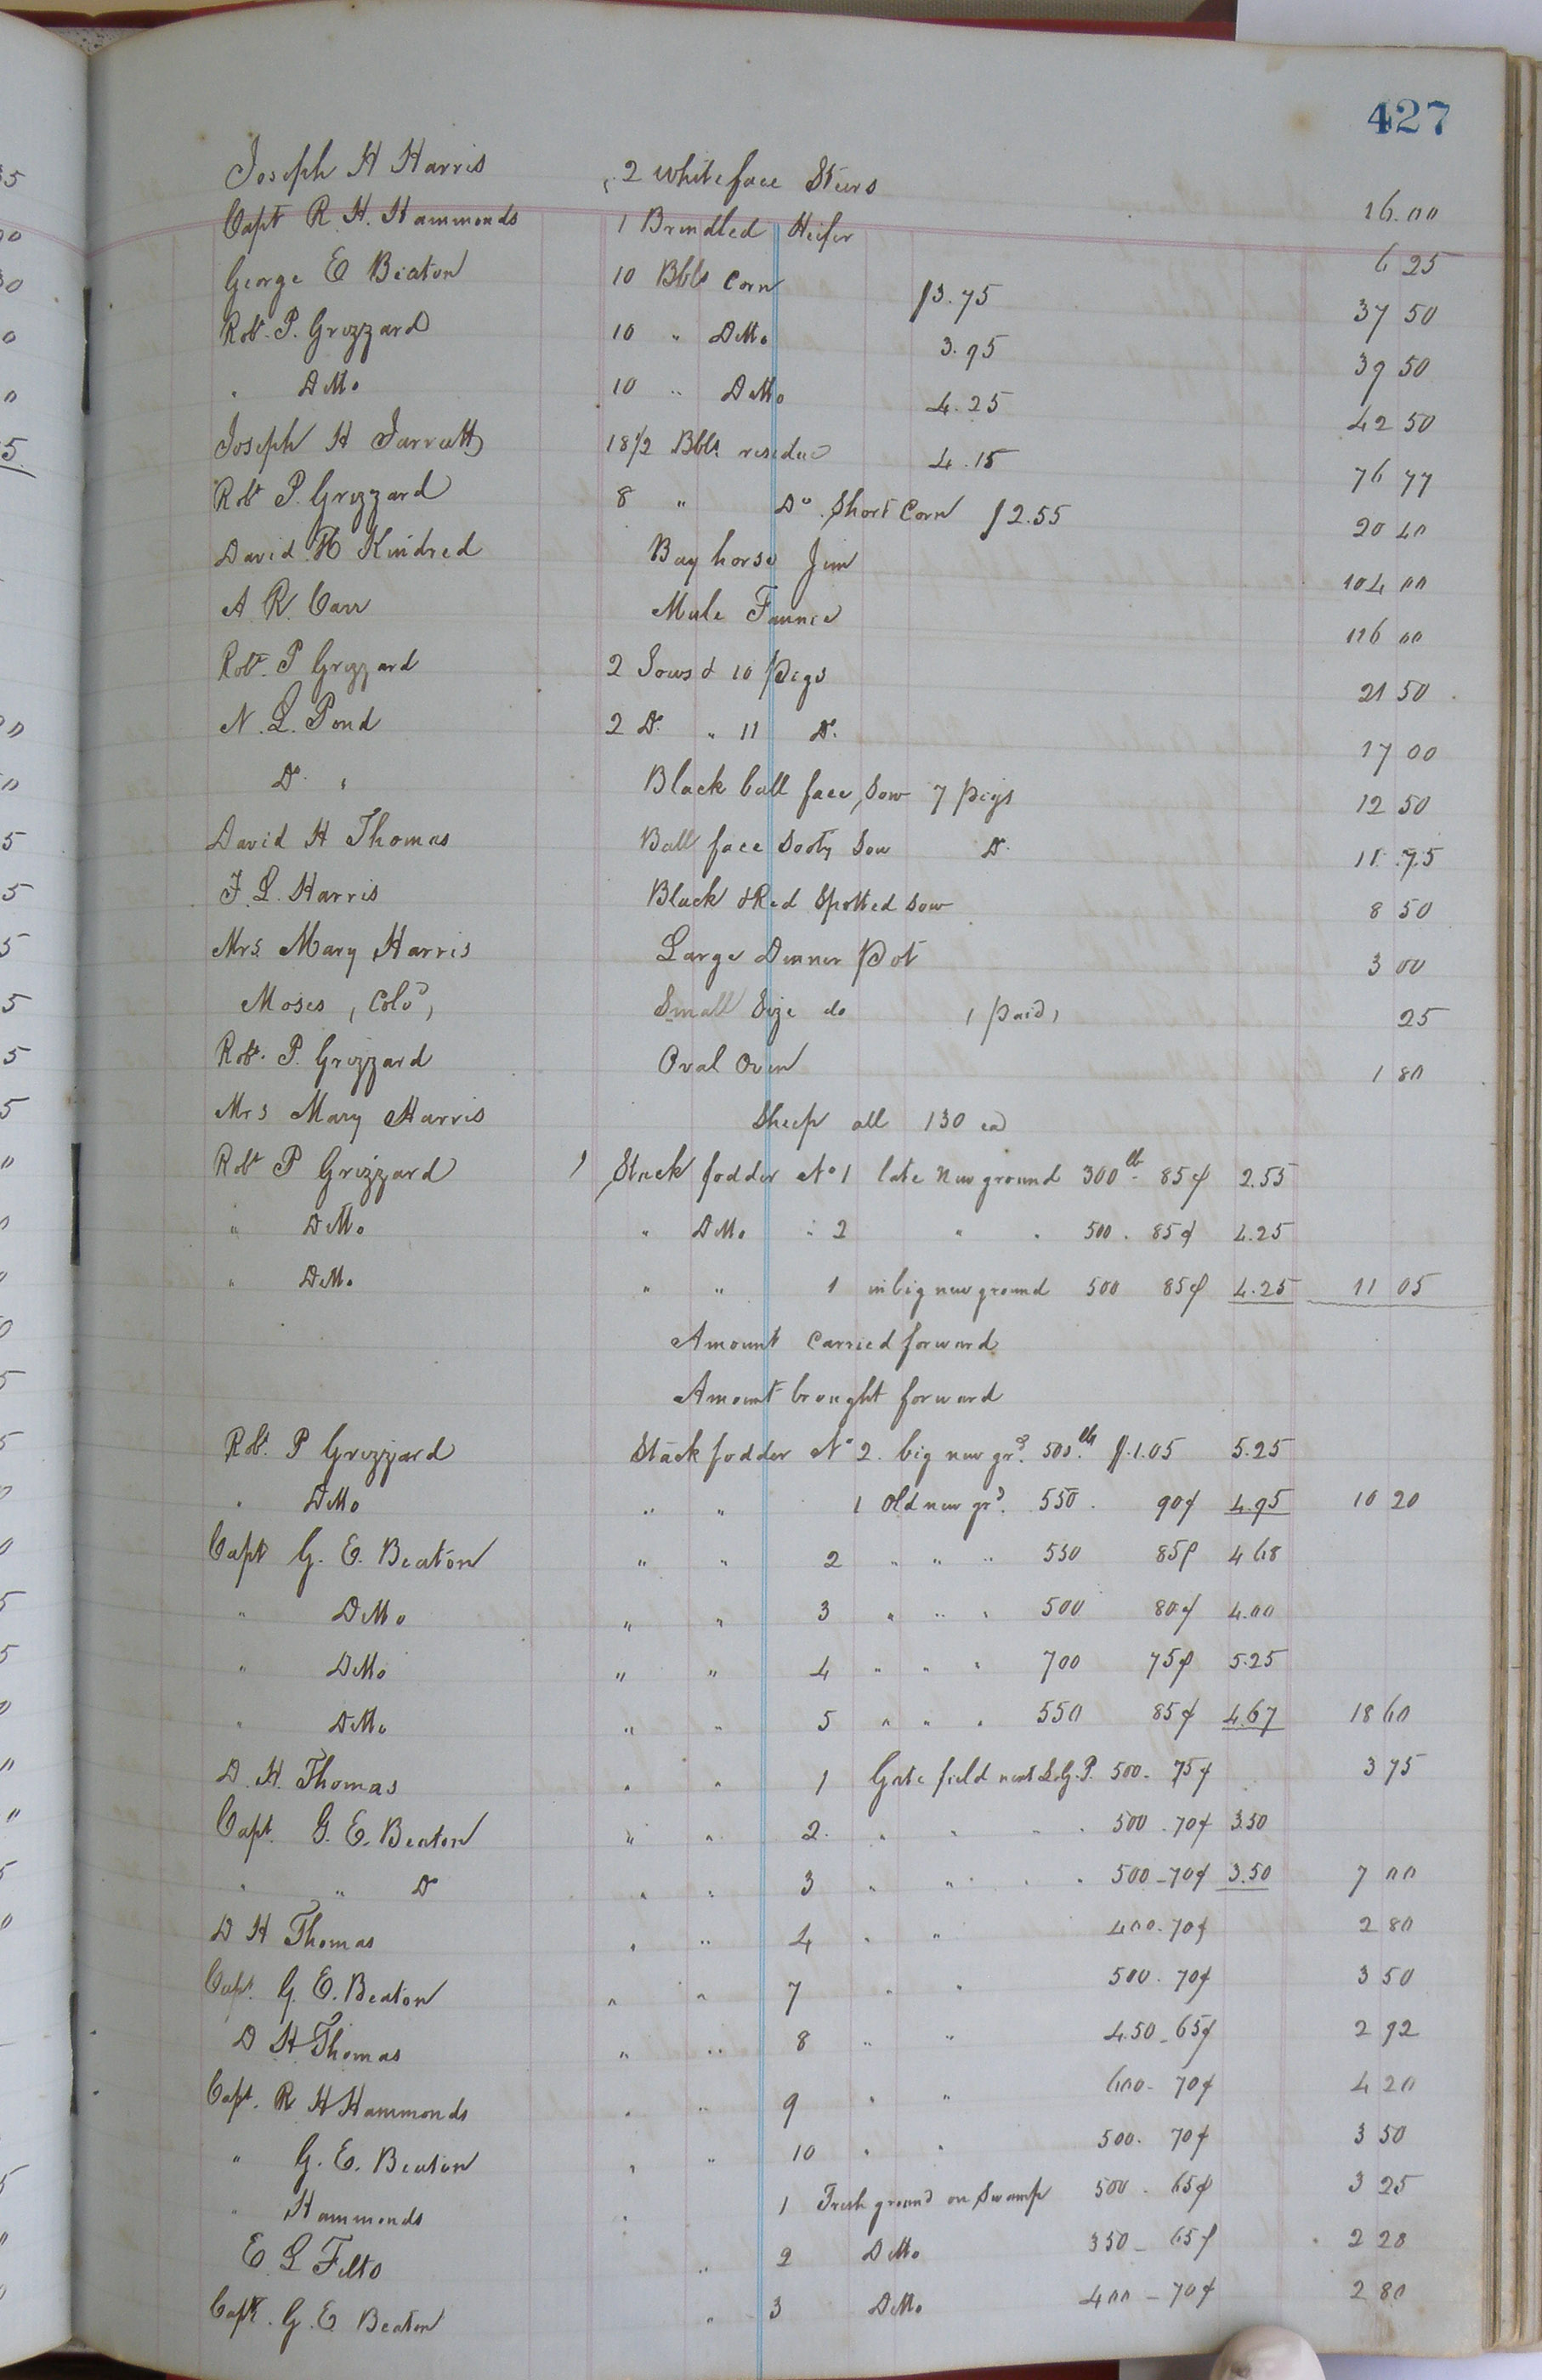 427
Joseph H Harris 2 white face Steers 16.00
Capt R. H. Hammonds 1 Brindled Heifer 6 25
George E Beaton 10 Bbls Corn $3.75 37 50
Robt. P. Grizzard 10 " Ditto 3.95 39 50
" Ditto 10 " Ditto 4.25 42 50
Joseph H Jarratt 18 1/2 Bbls residue 4.15 76 77
Robt P. Grizzard 8 " Do Short Corn $2.55 20 40
David H Kindred Bay horse Jim 104 00
A. R. Carr Mule Fannie 116 00
Robt. P Grizzard 2 Sows & 10 Pigs 21 50
N. L. Pond 2 Do " 11 Do. 17 00
Do " Black ball face Sow 7 pigs 12 50
David H Thomas Ball face Sooty Sow Do 11.75
J. L. Harris Black & Red Spotted Sow 8 50
Mrs. Mary Harris Large Dinner Pot 3 00
Moses (Cold) Small Size do (Paid) 25
Robt. P. Grizzard Oval Oven 1 80
Mrs Mary Harris Sheep all 130 ea
Robt P Grizzard 1 Stack fodder No 1 late new ground 300 lb. 85¢ 2.55
" Ditto " Ditto " 2 " " 500. 85¢ 4.25
" Ditto " " 1 in big new ground 500 85¢ 4.25 11 05
Amount Carried forward
Amount brought forward
Robt. P Grizzard Stack fodder No 2. big new grd. 500 lb. $1.05 5.25
" Ditto " " 1 Old new grd. 550. 90¢ 4.95 10 20
Capt G. E. Beaton " " 2 " " " 550 85¢ 4 68
" Ditto " " 3 " " " 500 80¢ 4.00
" Ditto " " 4 " " " 700 75¢ 5.25
" Ditto " " 5 " " " 550 85¢ 4.67 18 60
D. H. Thomas " " 1 Gate field next L.G.P. 500 - 75¢ 3 75
Capt. G. E. Beaton " " 2. " " " " 500 - 70¢ 3.50
" " Do " " 3 " " " " 500 - 70¢ 3.50 7 00
D H Thomas " " 4 " " 400 - 70¢ 2 80
Capt. G. E. Beaton " " 7 " " 500. 70¢ 3 50
D H Thomas " " 8 " " 450 - 65¢ 2 92
Capt. R H Hammonds " " 9 " " 600 - 70¢ 4 20
" G. E. Beaton " " 10 " " 500. 70¢ 3 50
" Hammonds " 1 Fresh ground on Swamp 500. 65¢ 3 25
E. L Felts " 2 Ditto 350 - 65¢ 2 28
Capt. G. E Beaton " 3 Ditto 400 - 70¢ 2 80